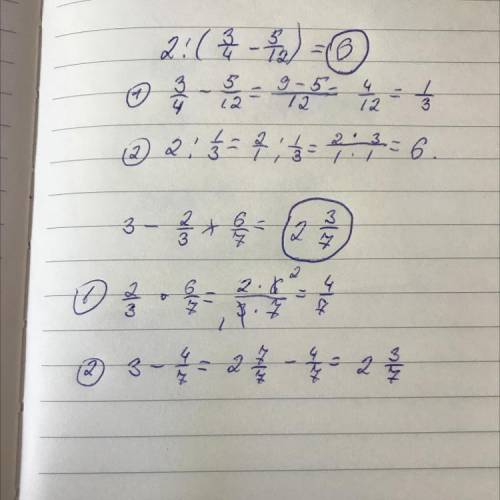 2 : (3/4 - 5/12) = 6
1) 3/4 - 5/12 = 9-5/12 = 4/12 = 1/3
2) 2 : 1/3 = 2/1 : 1/3 = 2 · 3/1 · 1 = 6.
3 - 2/3 × 6/7 = 2 3/7
1) 2/3 · 6/7 = 2 · 6 2/1 3 · 7 = 4/7
2) 3 - 4/7 = 2 7/7 - 4/7 = 2 3/7